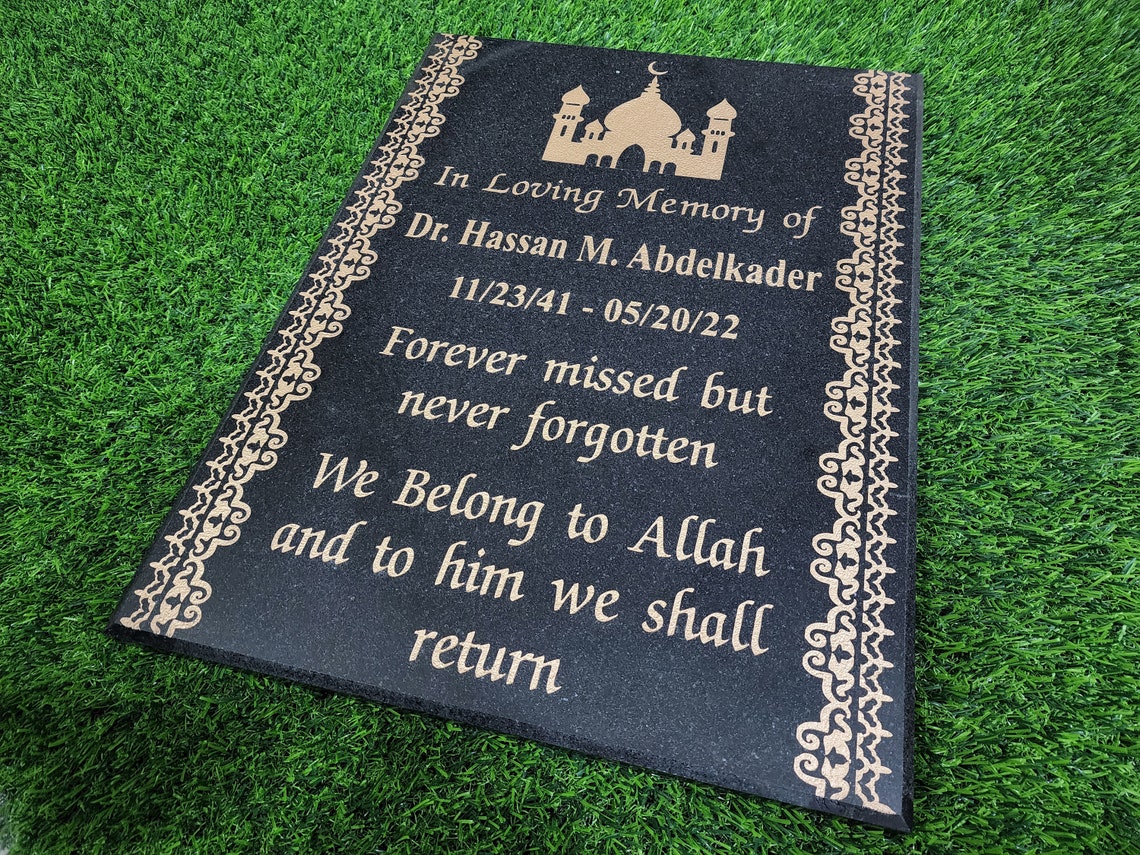 In Loving Memory of
Dr. Hassan M. Abdelkader
11/23/41 - 05/20/22
Forever missed but
never forgotten
We Belong to Allah
and to him we shall
return